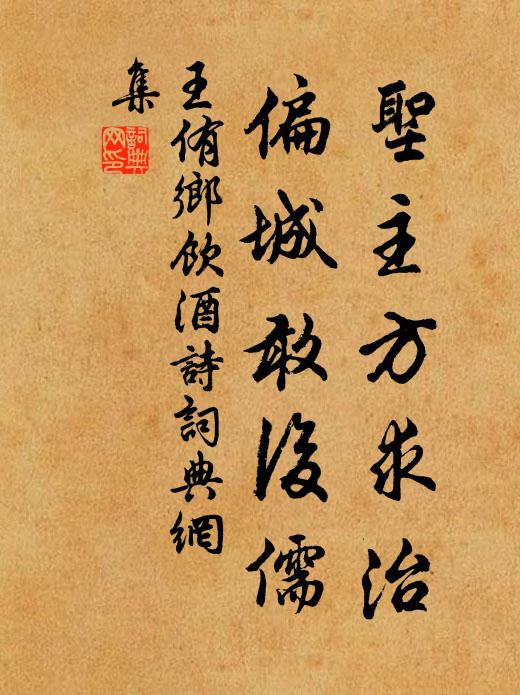 聖主方求治
偏城敢後儒
王侑鄉飲酒詩詞典網
集
詞典网印